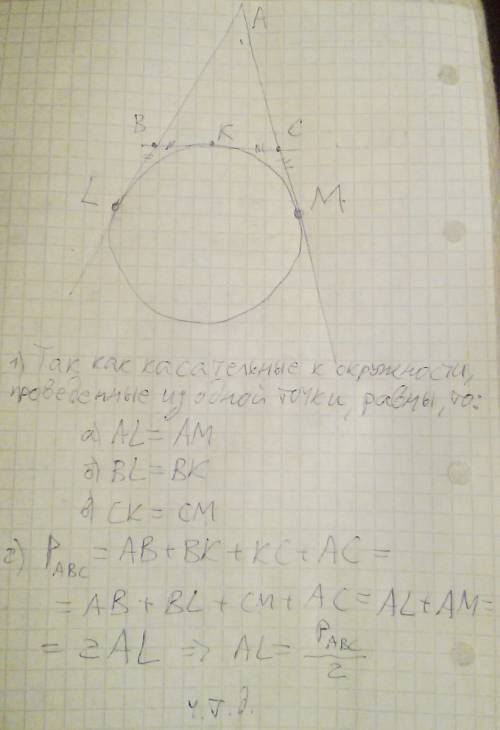 A
B
K
C
L
M
1) Так как касательные к окружности,
проведенные из одной точки, равны, то:
а) AL = AM
б) BL = BK
в) CK = CM
2) P_ABC = AB + BK + KC + AC =
= AB + BL + CM + AC = AL + AM =
= 2AL ⇒ AL = P_ABC / 2
ч.т.д.